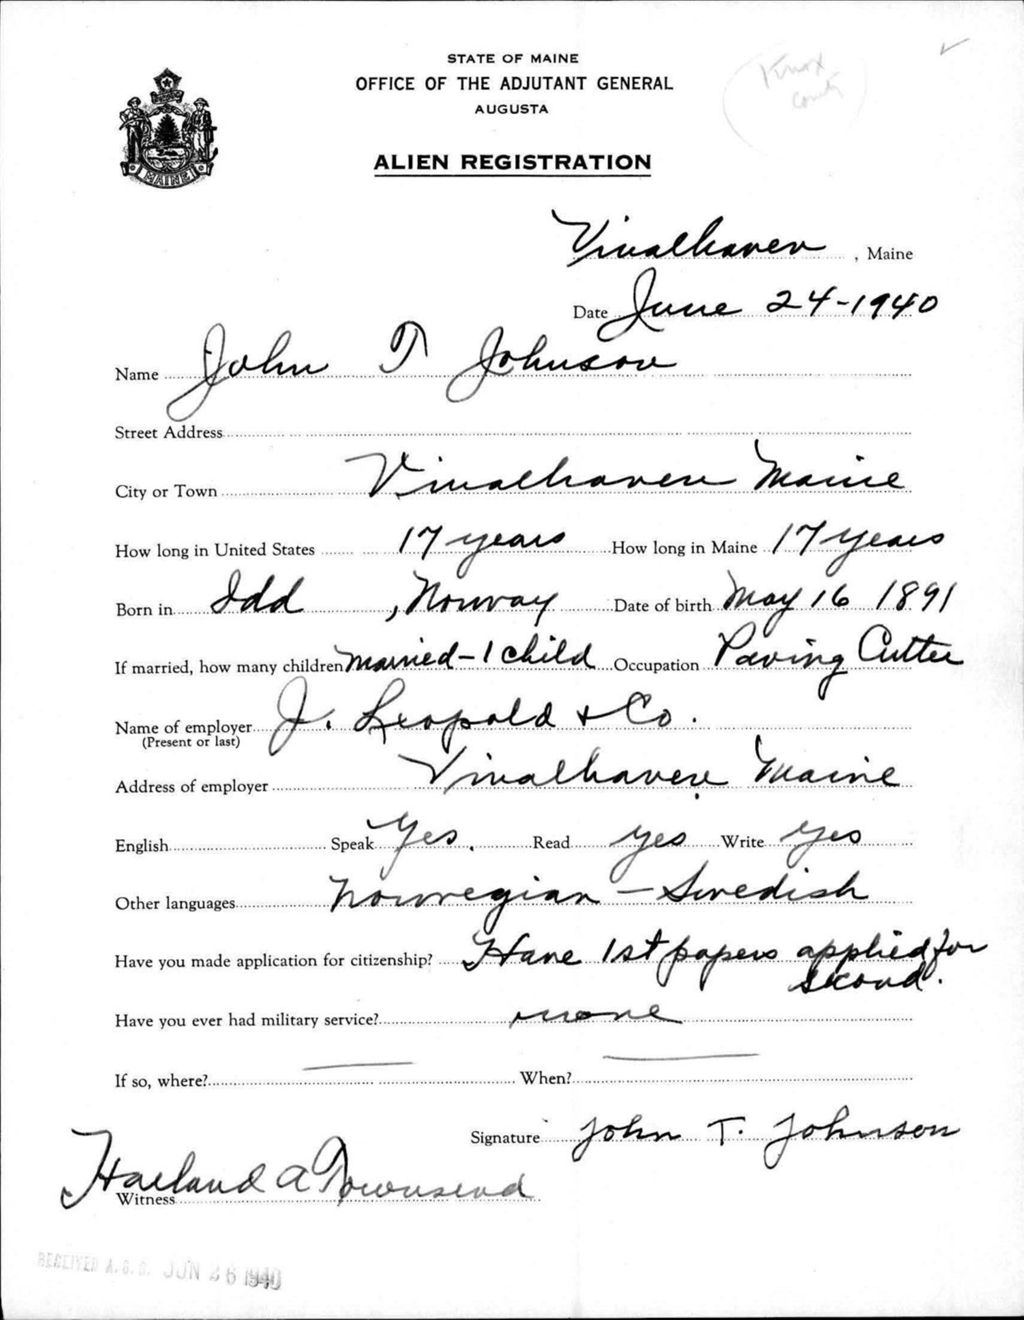 STATE OF MAINE
OFFICE OF THE ADJUTANT GENERAL
AUGUSTA
Knox
County
ALIEN REGISTRATION
MAINE
Vinalhaven, Maine
Date June 24-1940
Name John T Johnson
Street Address
City or Town Vinalhaven Maine
How long in United States 17 years How long in Maine 17 years
Born in Idd, Norway Date of birth May 16 1891
If married, how many children married-1 child Occupation Paving Cutter
Name of employer J. Leopold + Co.
(Present or last)
Address of employer Vinalhaven Maine
English Speak Yes. Read yes Write yes
Other languages Norwegian - Swedish
Have you made application for citizenship? Have 1st papers applied for
second.
Have you ever had military service? none
If so, where? — When? —
Signature John T. Johnson
Harland A Townsend
Witness
RECEIVED A.G.O. JUN 26 1940